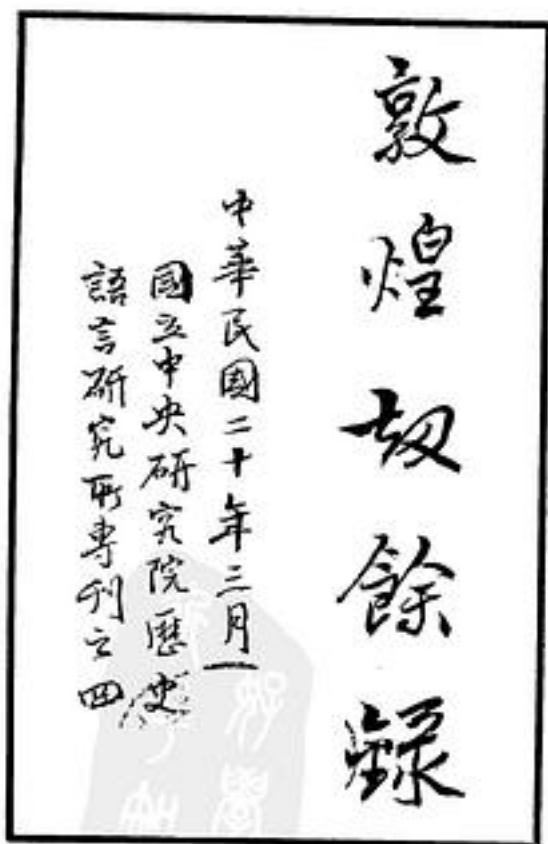 敦煌劫餘錄
中華民國二十年三月
國立中央研究院歷史
語言研究所專刊之四